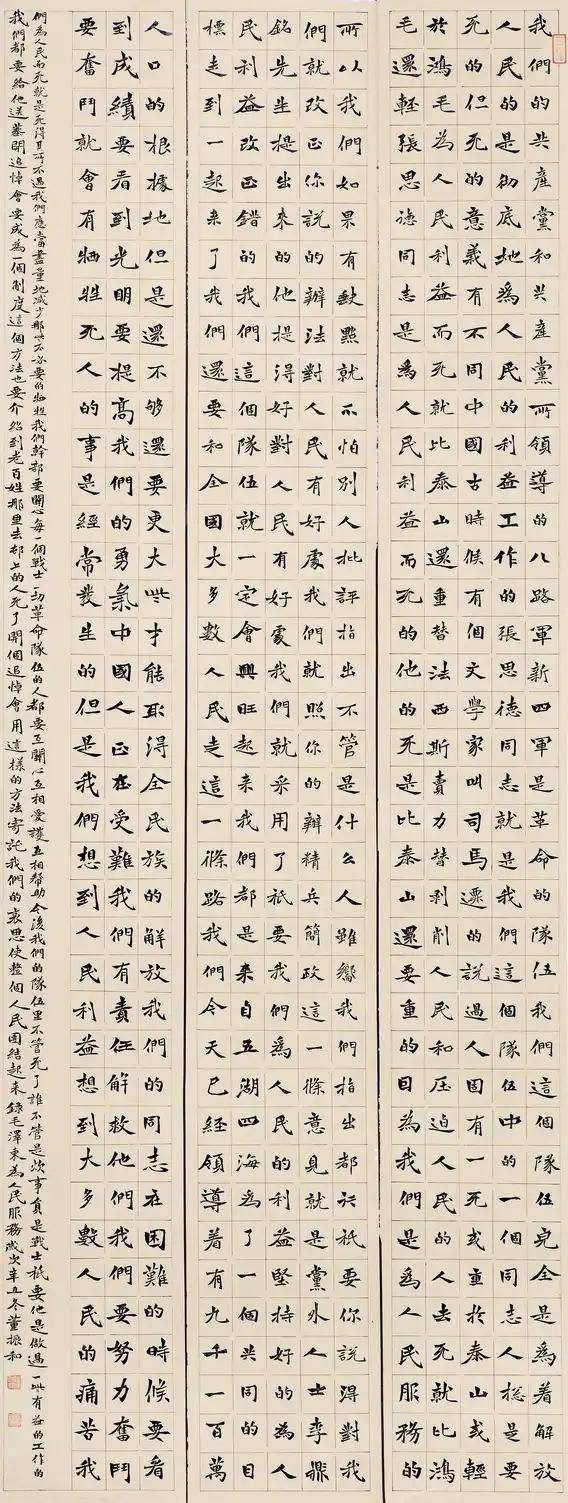 我們的共產黨和共產黨所領導的八路軍新四軍是革命的隊伍我們這個隊伍完全是為着解放
人民的是彻底地為人民的利益工作的張思德同志就是我們這個隊伍中的一個同志人總是要
死的但死的意義有不同中國古時候有個文學家叫司馬遷的說過人固有一死或重於泰山或輕
於鴻毛為人民利益而死就比泰山還重替法西斯賣力替剥削人民和压迫人民的人去死就比鴻
毛還輕張思德同志是為人民利益而死的他的死是比泰山還要重的因為我們是為人民服務的
所以我們如果有缺點就不怕别人批評指出不管是什么人誰嚮我們指出都行祇要你說得對我
們就改正你說的辦法對人民有好處我們就照你的辦精兵簡政這一條意見就是黨外人士李鼎
銘先生提出來的他提得好對人民有好處我們就采用了祇要我們為人民的利益堅持好的為人
民利益改正錯的我們這個隊伍就一定會興旺起来我們都是来自五湖四海為了一個共同的目
標走到一起来了我們還要和全國大多數人民走這一條路我們今天已經領導着有九千一百萬
人口的根據地但是還不够還要更大些才能取得全民族的解放我們的同志在困難的時候要看
到成績要看到光明要提高我們的勇氣中國人正在受難我們有責任解救他們我們要努力奮鬥
要奮鬥就會有牺牲死人的事是經常發生的但是我們想到人民利益想到大多數人民的痛苦我
們為人民而死就是死得其所不過我們應當盡量地减少那些不必要的牺牲我們幹部要關心每一個戰士一切革命隊伍的人都要互關心互相愛護互相幫助今後我們的隊伍里不管死了誰不管是炊事員是戰士祇要他是做過一些有益的工作的
我們都要給他送葬開追悼會要成為一個制度這個方法也要介紹到老百姓那里去村上的人死了開個追悼會用這樣的方法寄託我們的哀思使整個人民團結起来錄毛澤東為人民服務歲次辛丑冬董振和